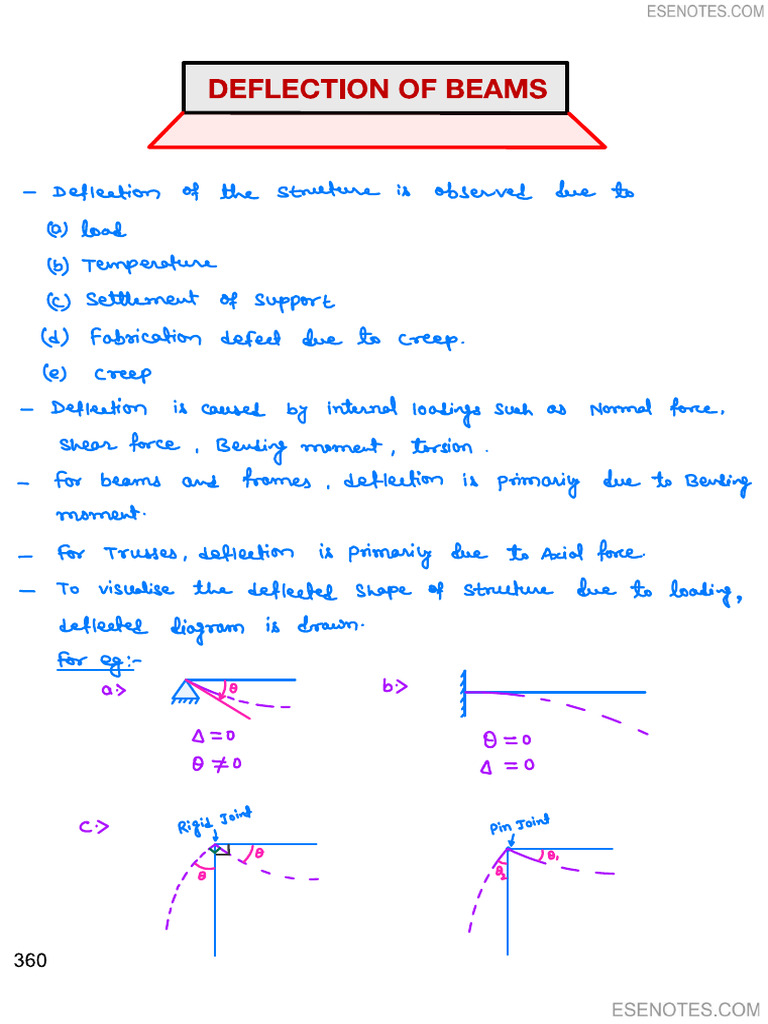 ESENOTES.COM
DEFLECTION OF BEAMS
- Deflection of the structure is observed due to
(a) load
(b) Temperature
(c) Settlement of support
(d) Fabrication defect due to creep.
(e) creep
- Deflection is caused by internal loadings such as Normal force,
shear force, Bending moment, torsion.
- For beams and frames, deflection is primarily due to Bending
moment.
- For Trusses, deflection is primarily due to Axial force.
- To visualise the deflected shape of structure due to loading,
deflected diagram is drawn.
For eg:-
a:> θ b:>
Δ = 0 θ = 0
θ ≠ 0 Δ = 0
c:> Rigid Joint Pin Joint
θ θ θ₁ θ₂
360
ESENOTES.COM